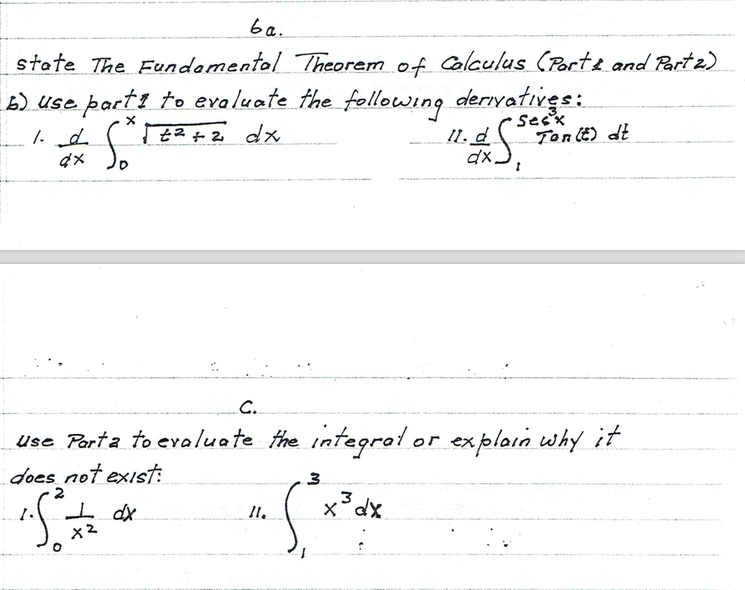 6a.
state The Fundamental Theorem of Calculus (Part 1 and Part 2)
b) use part 1 to evaluate the following derivatives:
1. d/dx ∫₀ˣ √(t² + 2) dx   11. d/dx ∫₁^(sec³x) Tan(t) dt
C.
use Part 2 to evaluate the integral or explain why it
does not exist:
1. ∫₀² 1/x² dx   11. ∫₁³ x³ dx